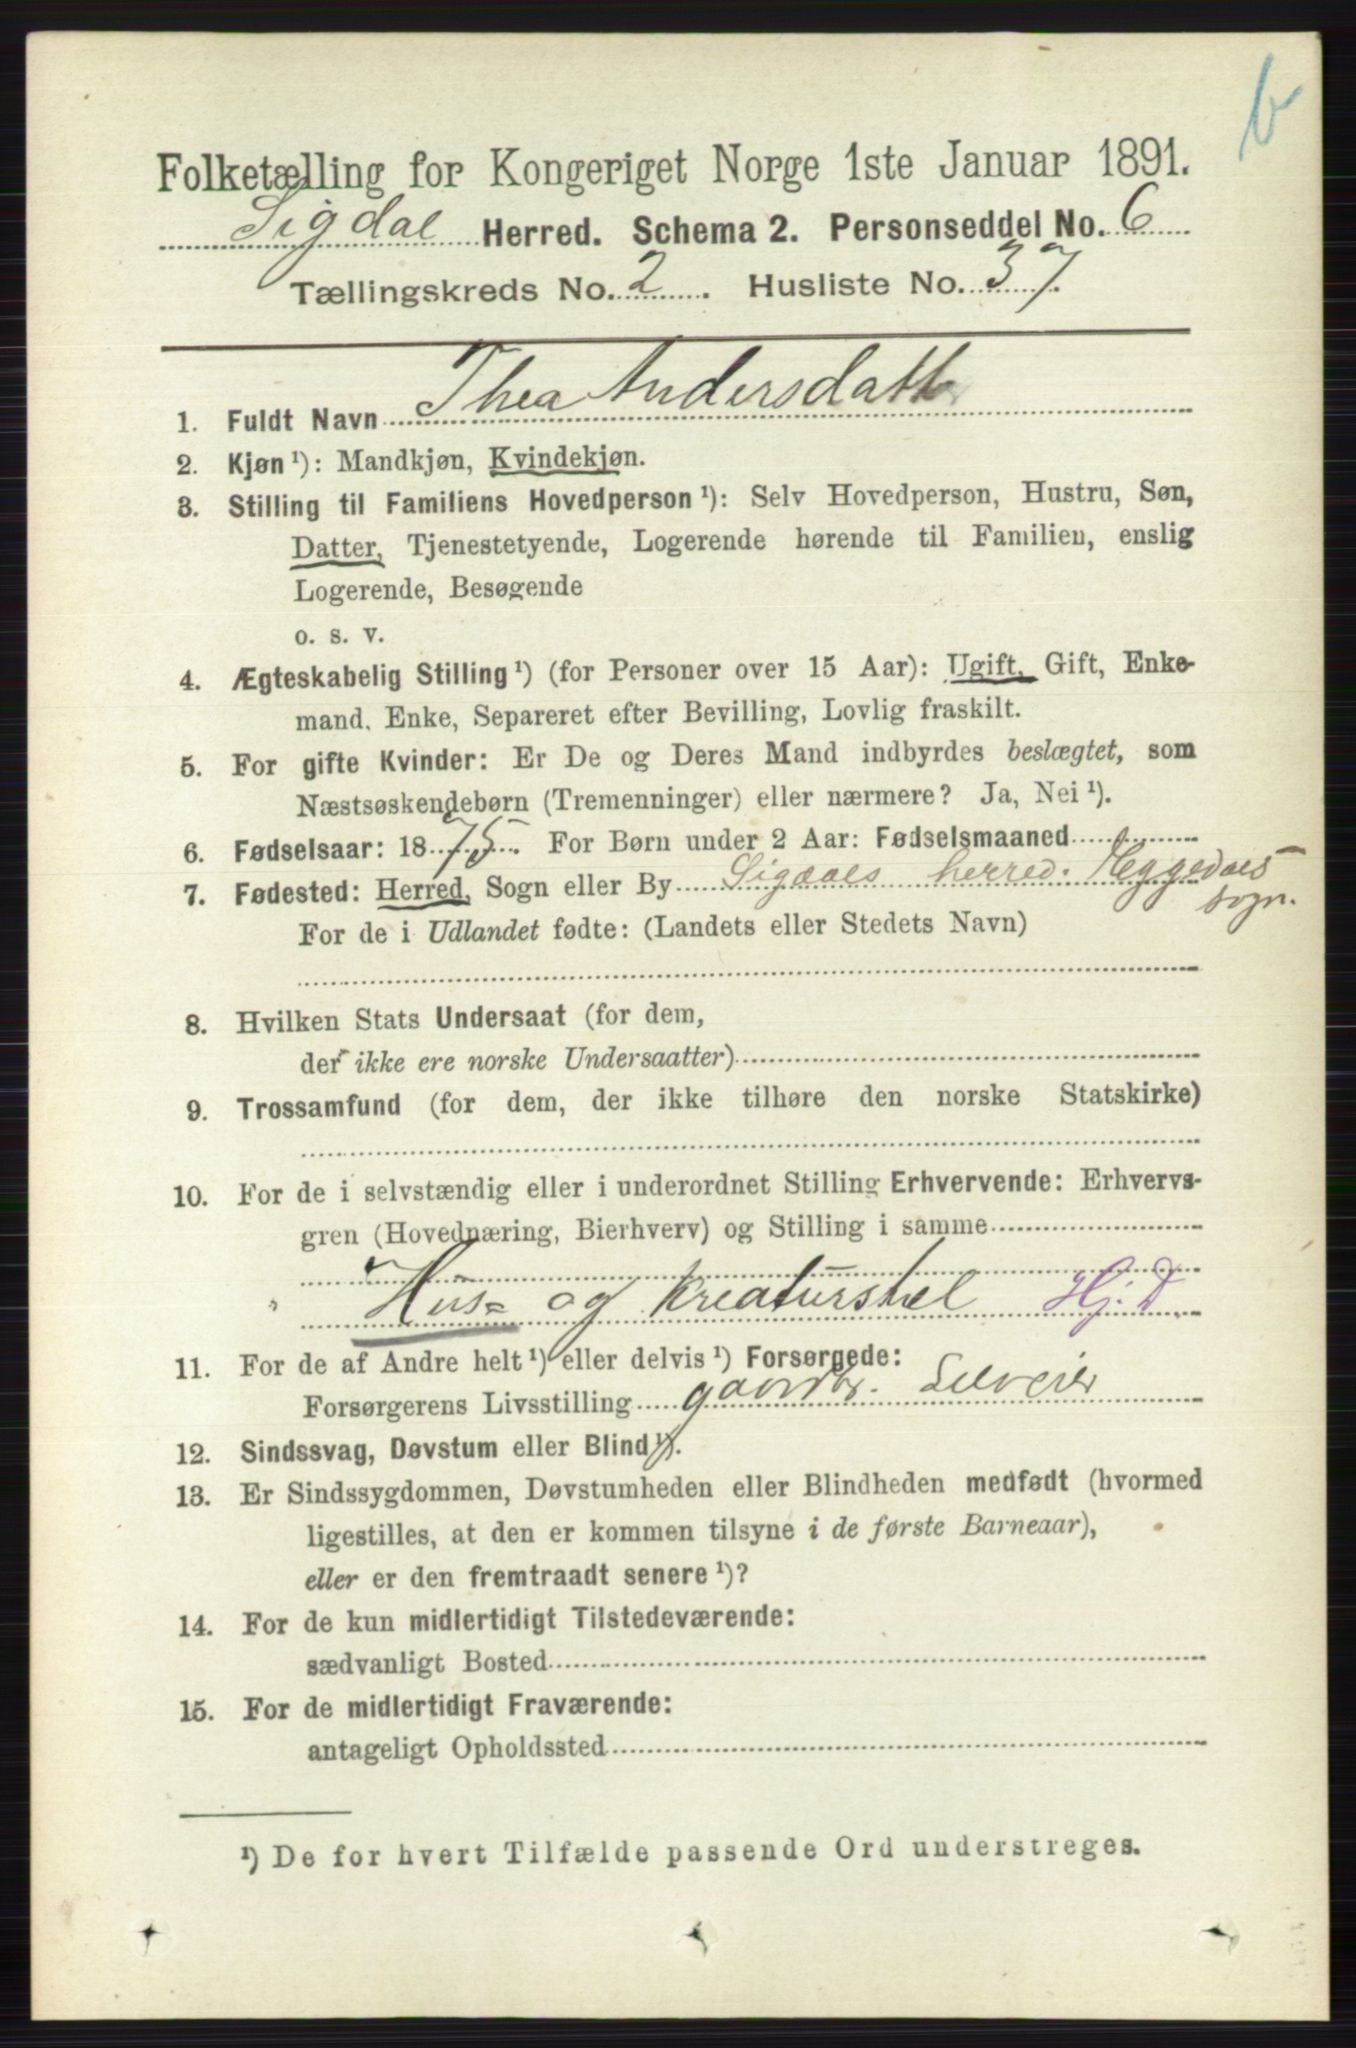 b
Folketælling for Kongeriget Norge 1ste Januar 1891.
Sigdal Herred. Schema 2. Personseddel No. 6
Tællingskreds No. 2. Husliste No. 37
1. Fuldt Navn Thea Andersdatt
2. Kjøn ¹): Mandkjøn, Kvindekjøn.
3. Stilling til Familiens Hovedperson ¹): Selv Hovedperson, Hustru, Søn,
Datter, Tjenestetyende, Logerende hørende til Familien, enslig
Logerende, Besøgende
o. s. v.
4. Ægteskabelig Stilling ¹) (for Personer over 15 Aar): Ugift, Gift, Enke-
mand, Enke, Separeret efter Bevilling, Lovlig fraskilt.
5. For gifte Kvinder: Er De og Deres Mand indbyrdes beslægtet, som
Næstsøskendebørn (Tremenninger) eller nærmere? Ja, Nei ¹).
6. Fødselsaar: 1875. For Børn under 2 Aar: Fødselsmaaned
7. Fødested: Herred, Sogn eller By Sigdals herred. Eggedals
sogn.
For de i Udlandet fødte: (Landets eller Stedets Navn)
8. Hvilken Stats Undersaat (for dem,
der ikke ere norske Undersaatter)
9. Trossamfund (for dem, der ikke tilhøre den norske Statskirke)
10. For de i selvstændig eller i underordnet Stilling Erhvervende: Erhvervs-
gren (Hovednæring, Bierhverv) og Stilling i samme
Hus= og Kreaturstel Hj. D.
11. For de af Andre helt ¹) eller delvis ¹) Forsørgede:
Forsørgerens Livsstilling gaardbr. Selveier
12. Sindssvag, Døvstum eller Blind ¹).
13. Er Sindssygdommen, Døvstumheden eller Blindheden medfødt (hvormed
ligestilles, at den er kommen tilsyne i de første Barneaar),
eller er den fremtraadt senere ¹)?
14. For de kun midlertidigt Tilstedeværende:
sædvanligt Bosted
15. For de midlertidigt Fraværende:
antageligt Opholdssted
¹) De for hvert Tilfælde passende Ord understreges.